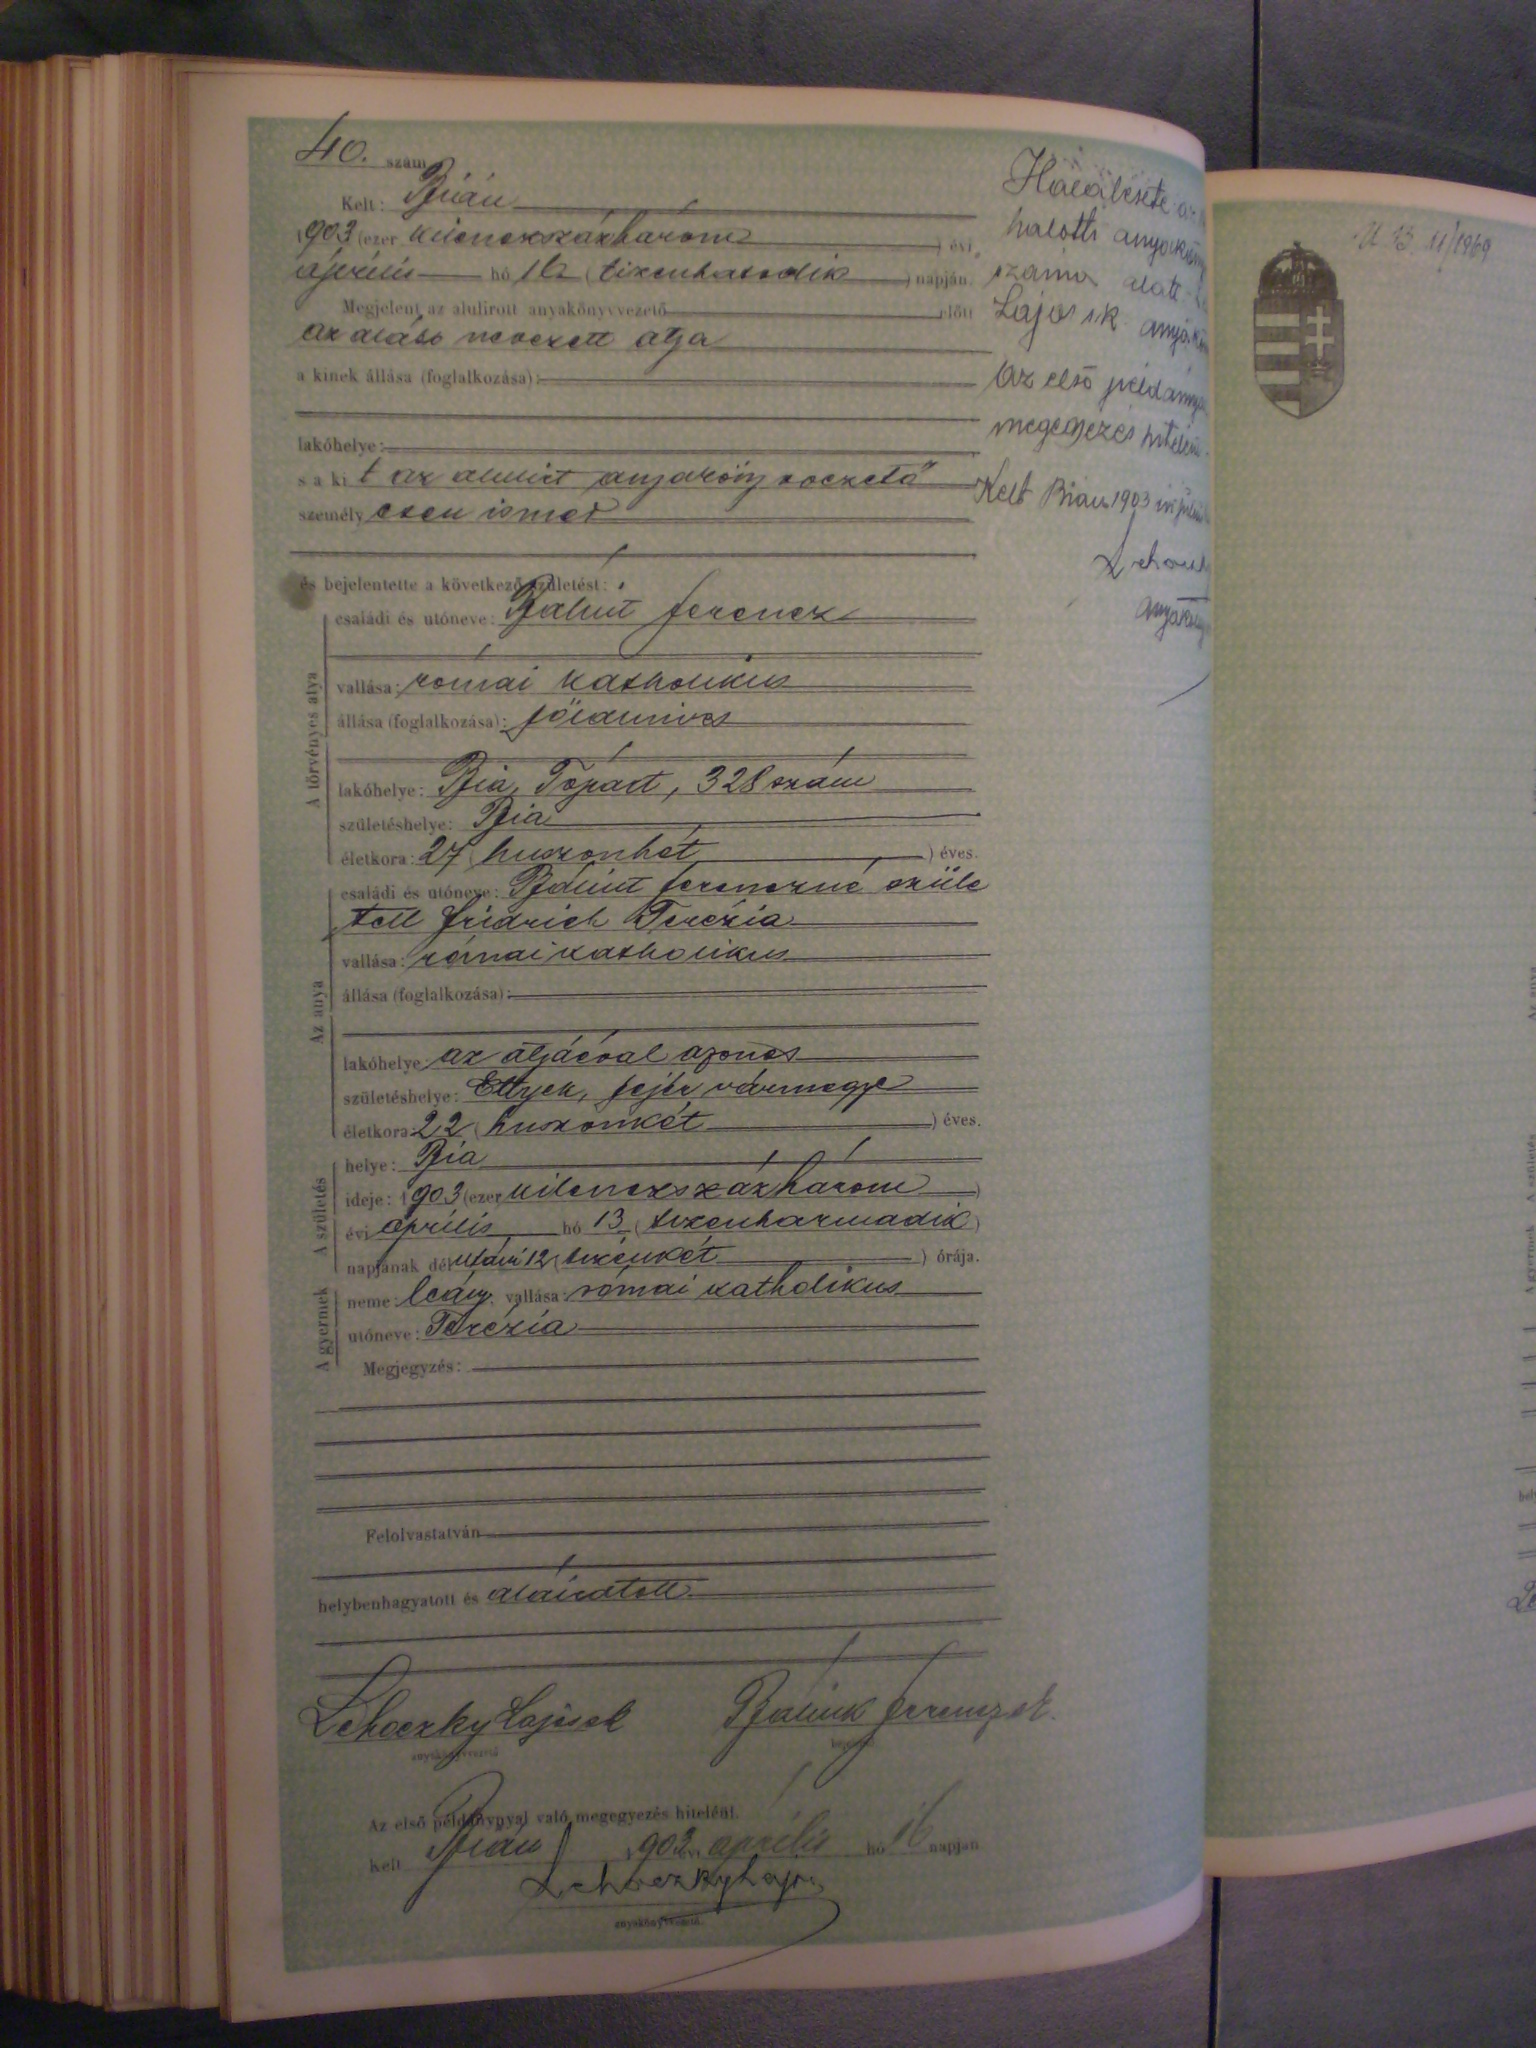 40. szám
Kelt: Bián
1903 (ezer kilenczszázhárom) évi
április hó 16 (tizenhatodik) napján.
Megjelent az alulirott anyakönyvvezető előtt
az alább nevezett atya
a kinek állása (foglalkozása):
lakóhelye:
s a kit az alulirt anyakönyvvezető
személyesen ismer
és bejelentette a következő születést:
A törvényes atya
családi és utóneve: Bálint Ferencz
vallása: római katholikus
állása (foglalkozása): földmíves
lakóhelye: Bia, Tópart, 328 szám
születéshelye: Bia
életkora: 27 (huszonhét) éves.
Az anya
családi és utóneve: Bálint Ferenczné szüle
tett Fridrich Terézia
vallása: római katholikus
állása (foglalkozása):
lakóhelye: az atyáéval azonos
születéshelye: Ettyek, Fejér vármegye
életkora: 22 (huszonkét) éves.
A születés
helye: Bia
ideje: 1903 (ezer kilenczszázhárom)
évi április hó 13 (tizenharmadik)
napjának délutáni 12 (tizenkét) órája.
A gyermek
neme: leány. vallása: római katholikus
utóneve: Terézia
Megjegyzés:
Felolvastatván
helybenhagyatott és aláiratott
Lehoczky Lajos sk Bálint Ferencz sk.
anyakönyvvezető
Az első példánynyal való megegyezés hiteléül.
Kelt Bián 1903 évi április hó 16 napján
Lehoczky Lajos
anyakönyvvezető.
halotti
száma alatt
Lajos s.k.
Az első
megegyezés
Kelt Bián 1903
U 13. 11/1969